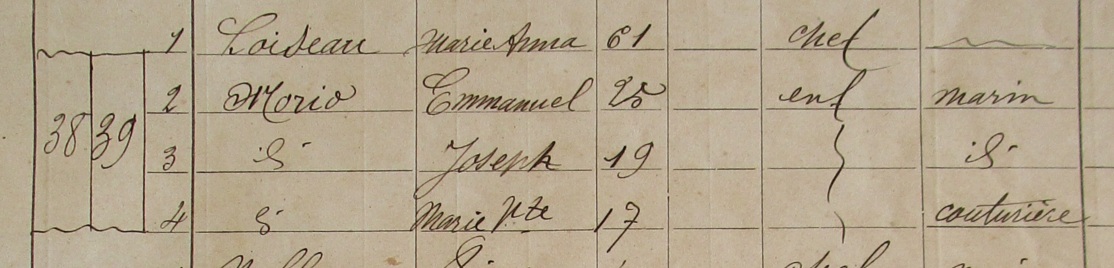 1 Loiseau Marie Anna 61 chef
38 39
2 Morio Emmanuel 25 enf marin
3 id Joseph 19 id
4 id Marie Vte 17 couturière